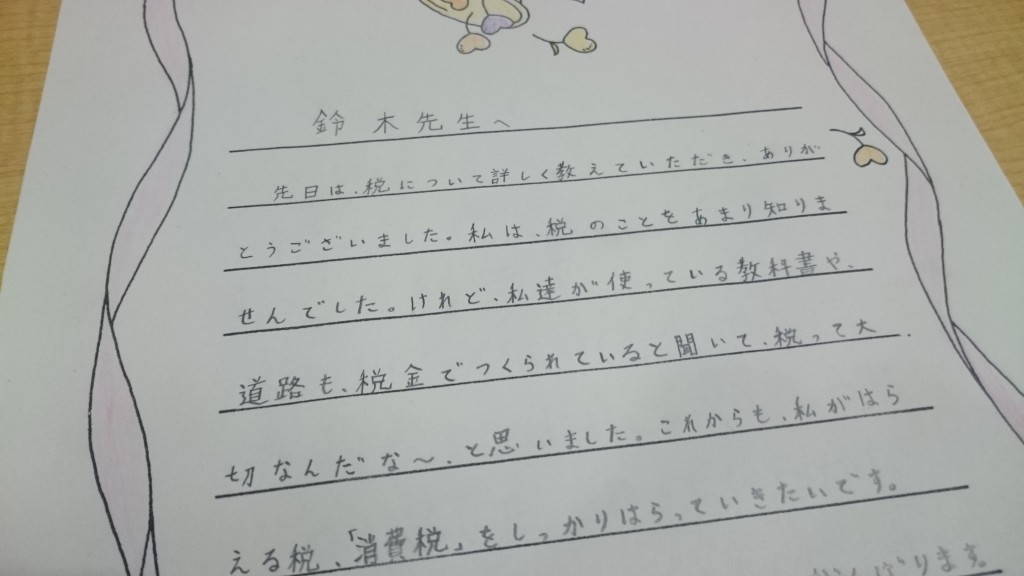 鈴木先生へ
先日は、税について詳しく教えていただき、ありが
とうございました。私は、税のことをあまり知りま
せんでした。けれど、私達が使っている教科書や、
道路も、税金でつくられていると聞いて、税って大
切なんだな〜、と思いました。これからも、私がはら
える税、「消費税」をしっかりはらっていきたいです。
ばります。